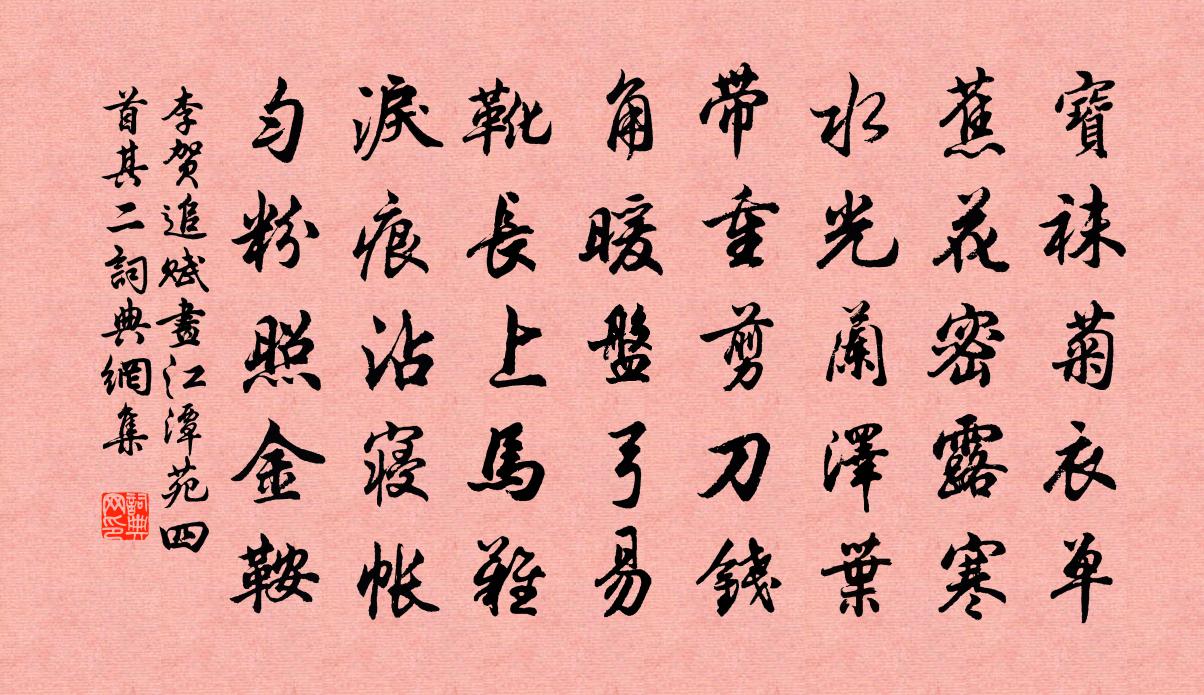 寶袜菊衣单
蕉花密露寒
水光蘭澤葉
带重剪刀錢
角暖盤弓易
靴長上馬難
淚痕沾寝帐
匀粉照金鞍
李贺追赋畫江潭苑四
首其二詞典網集
詞典网印